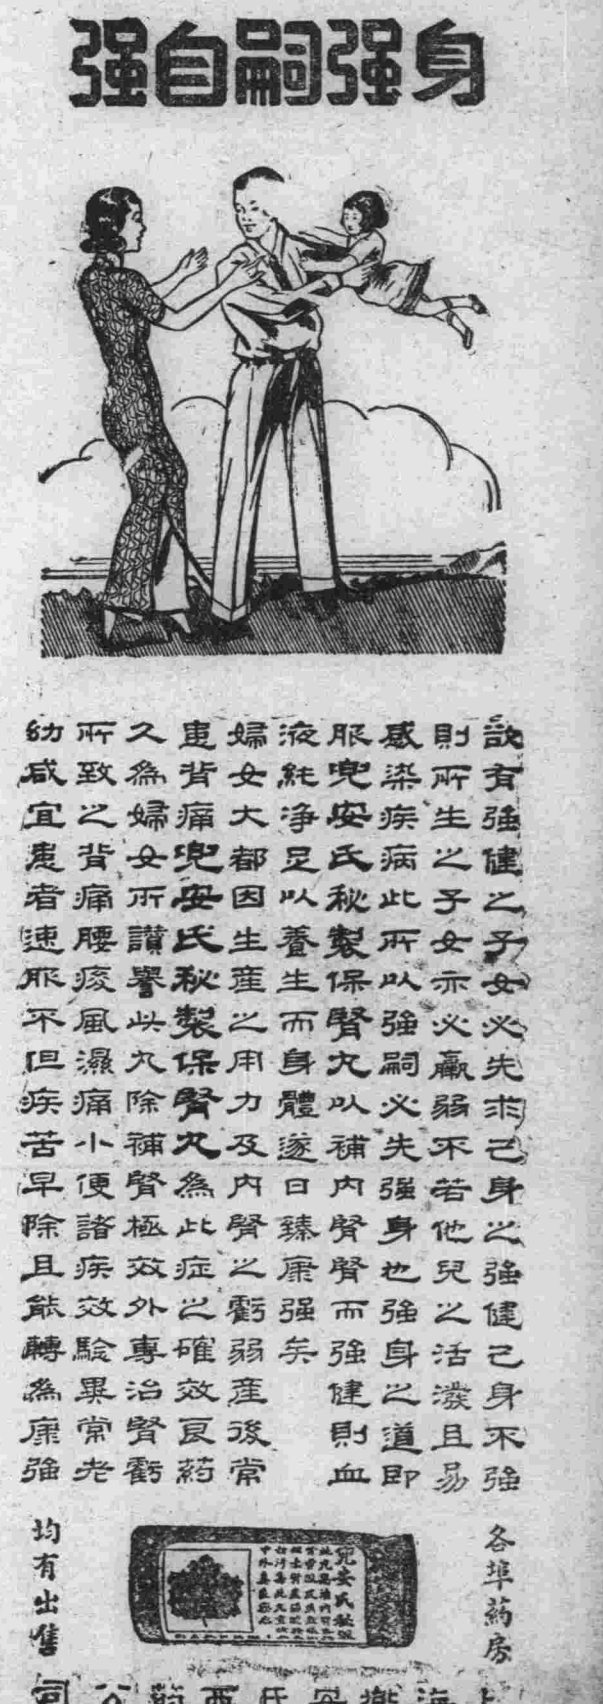 身强嗣自强
設有強健之子女必先求己身之強健己身不強
則所生之子女亦必羸弱不若他兒之活潑且易
感染疾病此所以強嗣必先強身也強身之道即
服兜安氏秘製保腎丸以補內腎腎而強健則血
液純净足以養生而身體遂日臻康强矣
婦女大都因生產之用力及內腎之虧弱產後常
患背痛兜安氏秘製保腎丸為此症之確效良药
久為婦女所讚譽此丸除補腎極效外專治腎虧
所致之背痛腰痠風濕痛小便諸疾效驗異常老
幼咸宜患者速服不但疾苦早除且能轉為康強
各埠药房
兜安氏秘製
均有出售
海兜安氏西药公司